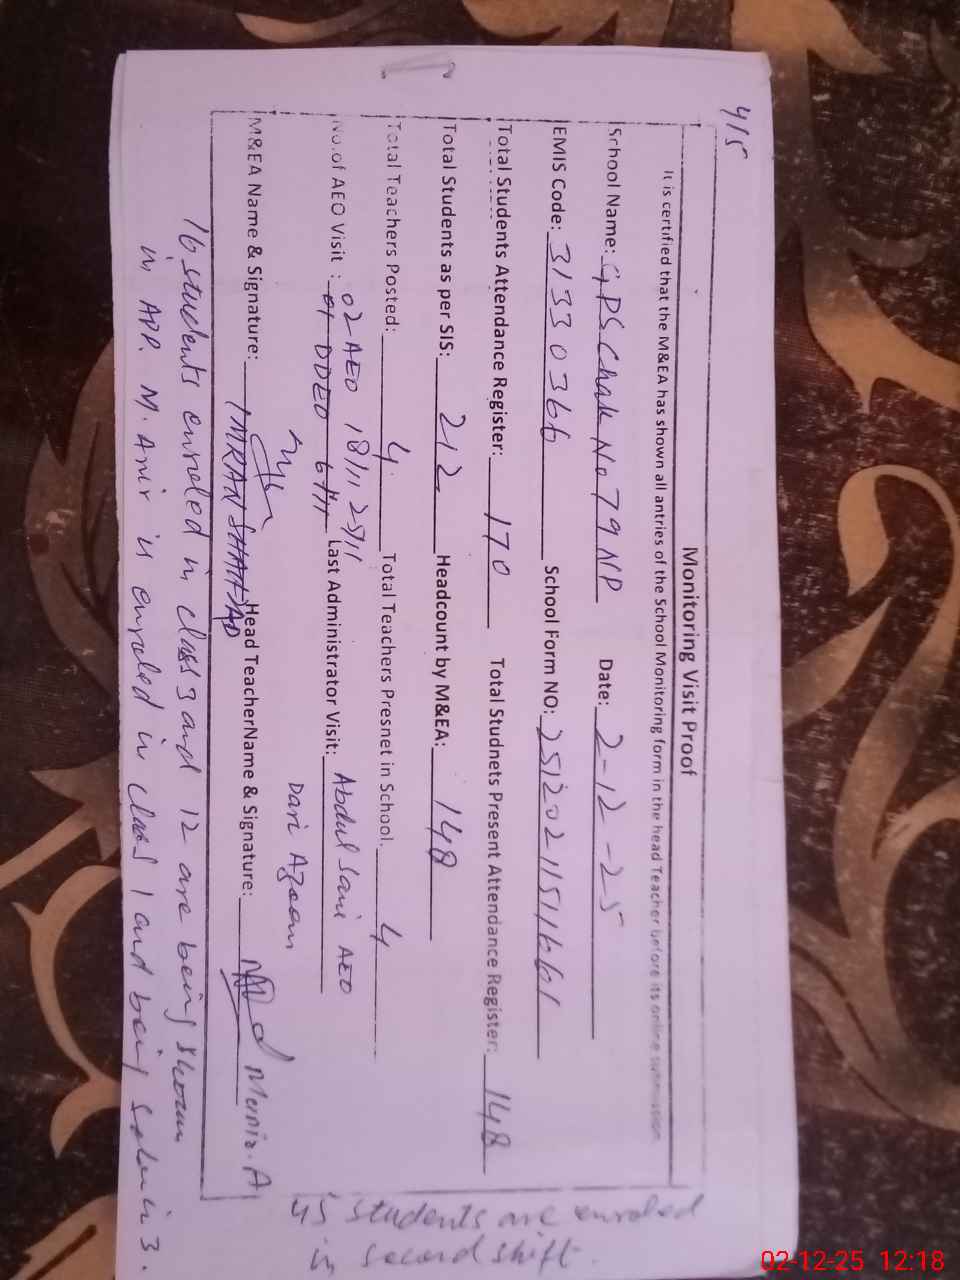 415
Monitoring Visit Proof
It is certified that the M&EA has shown all antries of the School Monitoring form in the head Teacher before its online submission
School Name: GPS Chak No 79 NP Date: 2-12-25
EMIS Code: 31330366 School Form NO:
Total Students Attendance Register: 170 Total Studnets Present Attendance Register: 148
Total Students as per SIS: 212 Headcount by M&EA: 148
Total Teachers Posted: 4 Total Teachers Presnet in School. 4
No of AEO Visit : 02 AEO 18/11 25/11 Last Administrator Visit: Abdul AEO
01 DDEO 6/11
M&EA Name & Signature: IMRAN SHAHZAD Head TeacherName & Signature: Munir. A
16 students enroled in class 3 and 12 are being shown
in APP. M. Amir is enroled in class 1 and being in 3.
45 students are enroled
in second shift.
02-12-25 12:18